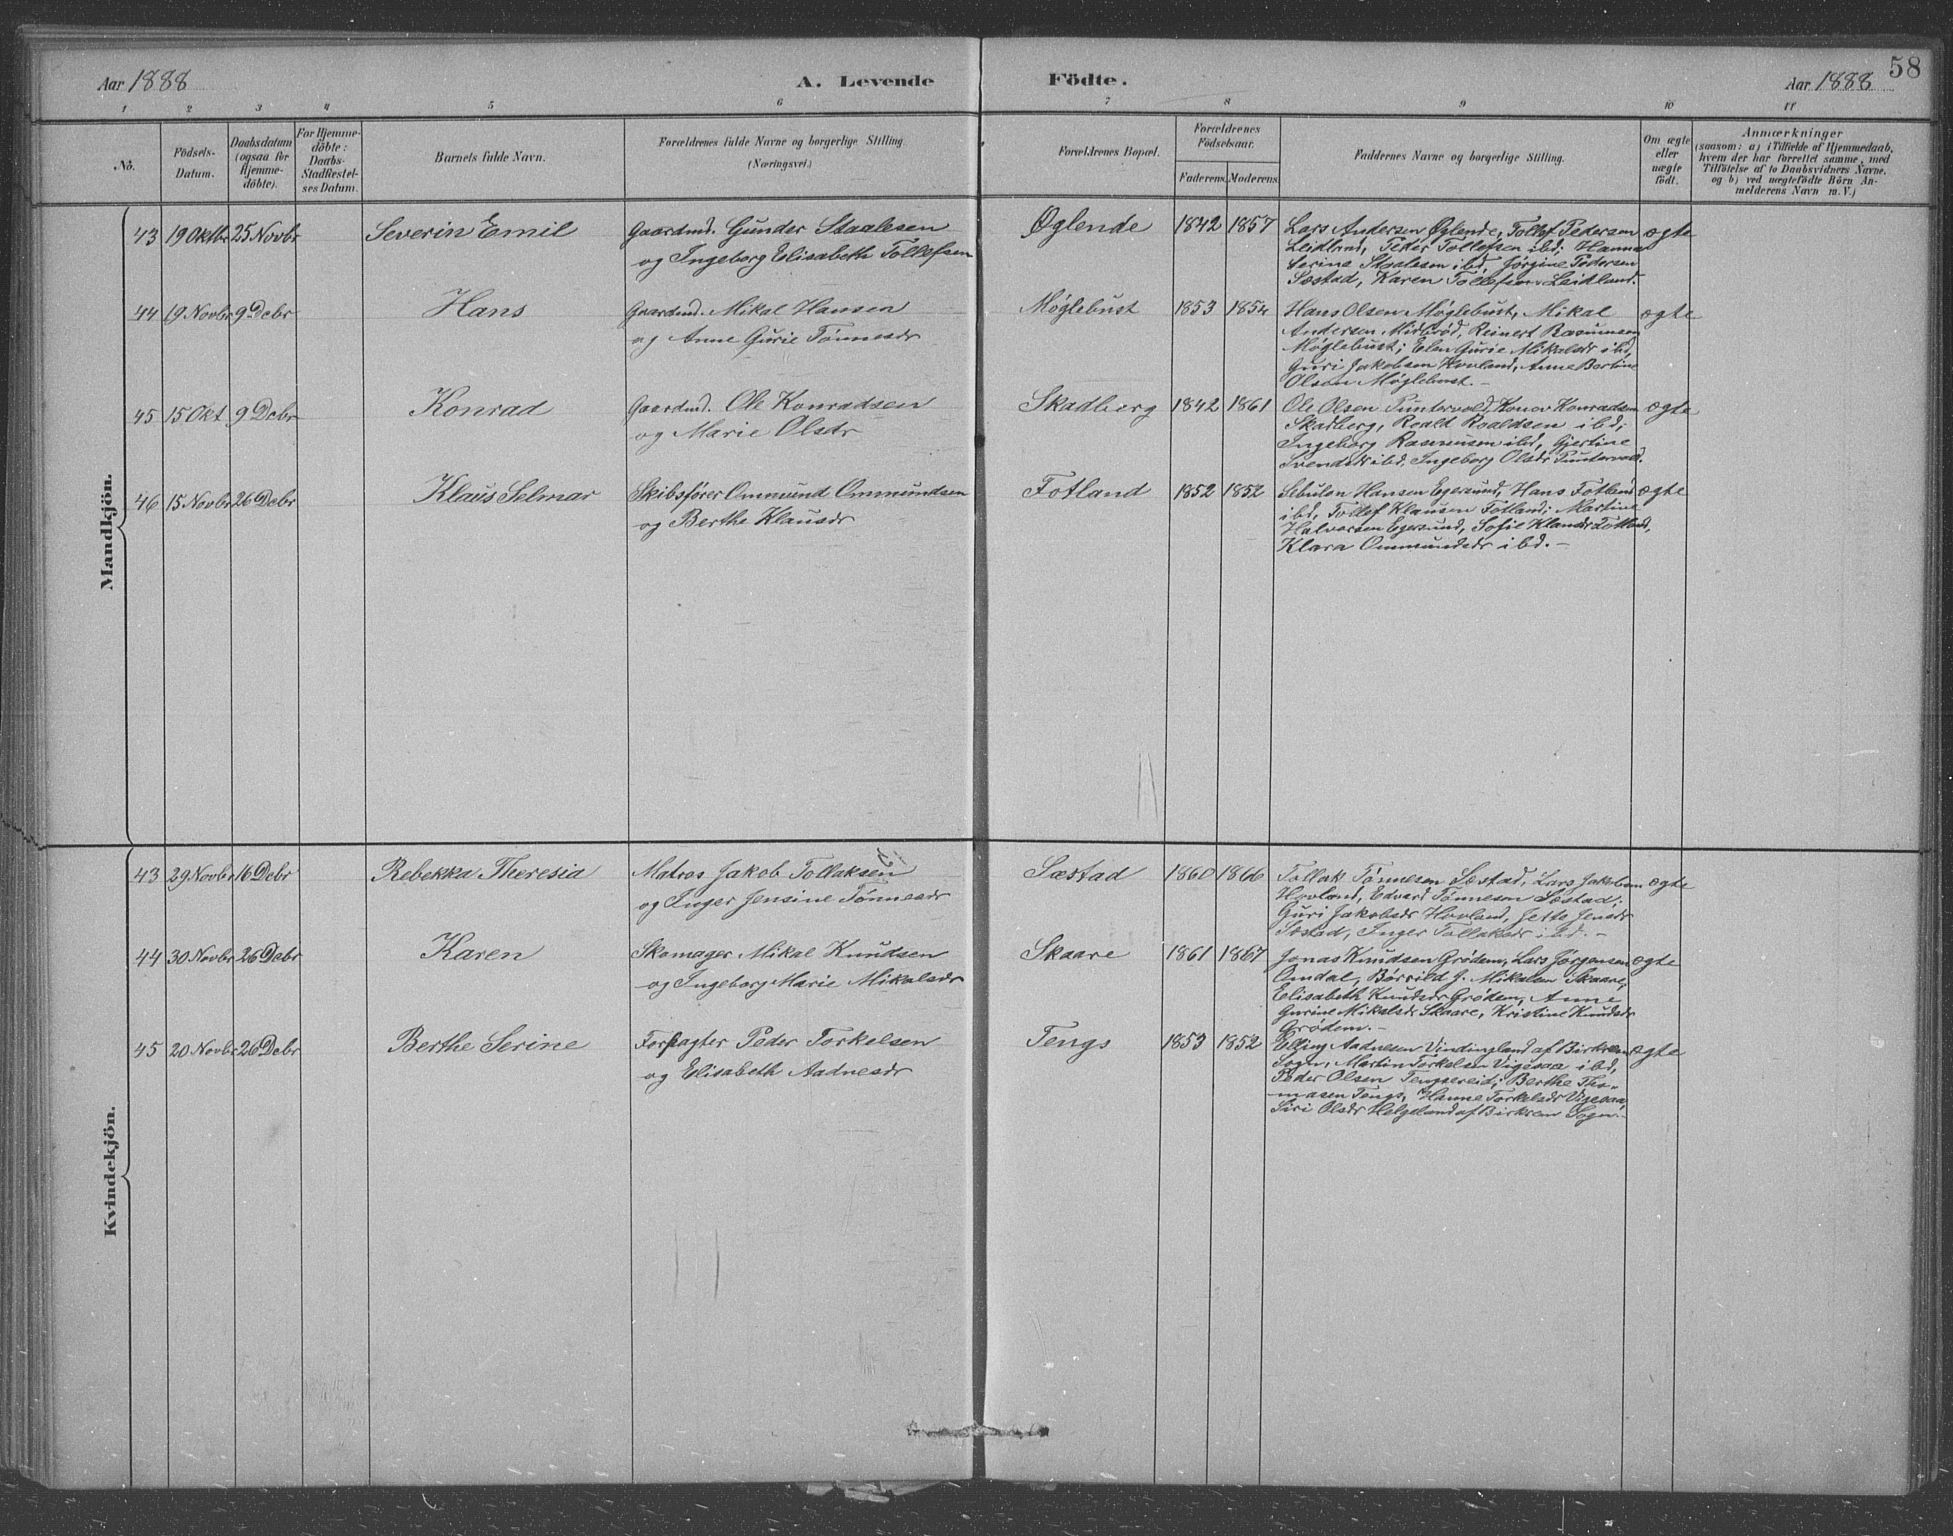 58
Aar 1888
A. Levende Födte.
Aar 1888
1 2 3 4 5 6 7 8 9 10 11
No.
Födsels-
Datum.
Daabsdatum
(ogsaa for
Hjemme-
döbte).
For Hjemme-
döbte:
Daabs-
Stadfæstel-
ses Datum.
Barnets fulde Navn.
Forældrenes fulde Navne og borgerlige Stilling.
(Næringsvei.)
Forældrenes Bopæl.
Forældrenes
Födselsaar.
Faderens. Moderens.
Faddernes Navne og borgerlige Stilling.
Om ægte
eller
uægte
født.
Anmærkninger
(saasom: a) i Tilfælde af Hjemmedaab,
hvem der har forrettet samme, med
Tilföielse af to Daabsvidners Navne,
og b) ved uægtefödte Börn An-
melderens Navn m. V.)
Mandkjön.
43 19 Oktbr 25 Novbr Severin Emil
Gaardmd. Gunder Staalesen
og Ingeborg Elisabeth Tollefsen
Øglende 1842 1857
Lars Andersen Øglende, Tollef Pedersen
Leidland, Peder Tollefsen ibd; Hanna
Serine Staalesen ibd, Jørgine Pedersen
Sæstad, Karen Tollefsen Leidland.
ægte
44 19 Novbr 9 Debr Hans
Gaardmd. Mikal Hansen
og Anne Gurie Tønnesdr
Møglebust 1853 1854
Hans Olsen Møglebust, Mikal
Andersen Midbrød, Reinert Rasmusen
Møglebust; Elen Gurie Mikalsdr ibd,
Guri Jakobsen Hovland, Anne Bertine
Olsen Møglebust.-
ægte
45 15 Okt 9 Debr Konrad
Gaardmd. Ole Konradsen
og Marie Olsdr
Skadberg 1842 1861
Ole Olsen Puntervold, Konov Konradsen
Skadberg, Roald Roaldsen ibd;
Ingeborg Rasmusen ibd, Gjertine
Svendsdr ibd, Ingeborg Olsdr Puntervold.
ægte
46 15 Novbr 26 Debr Klaus Selmar
Skibsfører Ommund Ommundsen
og Berthe Klausdr
Fotland 1852 1852
Sebulon Hansen Egersund, Hans Fotland
ibd, Tollef Klausen Fotland; Martine
Halvorsen Egersund, Sofie Klausdr Fotland,
Klara Ommundsdr ibd.-
ægte
Kvindekjön.
43 29 Novbr 16 Debr Rebekka Theresia
Matros Jakob Tollaksen
og Inger Jensine Tønnesdr
Sæstad 1860 1866
Tollak Tønnesen Sæstad, Lars Jakobsen
Hovland, Edvard Tønnesen Sæstad;
Guri Jakobsdr Hovland, Jette Jensdr
Sæstad, Inger Tollaksdr ibd.-
ægte
44 30 Novbr 26 Debr Karen
Skomager Mikal Knudsen
og Ingeborg Marie Mikalsdr
Skaare 1861 1867
Jonas Knudsen Grødem, Lars Jørgensen
Omdal, Børsild J. Mikalsen Skaare,
Elisabeth Knudsdr Grødem, Anne
Gurine Mikalsdr Skaare, Kristine Knudsdr
Grødem.-
ægte
45 20 Novbr 26 Debr Berthe Serine
Forpagter Peder Torkelsen
og Elisabeth Aadnesdr
Tengs 1853 1852
Elling Aadnesen Vindingland af Birkrem
Sogn, Martin Torkelsen Vigesaa ibd,
Peder Olsen Tengsereid; Berthe Tho-
masen Tengs, Hanne Torkelsdr Vigesaa,
Siri Olsdr Helgeland af Birkrem Sogn.-
ægte